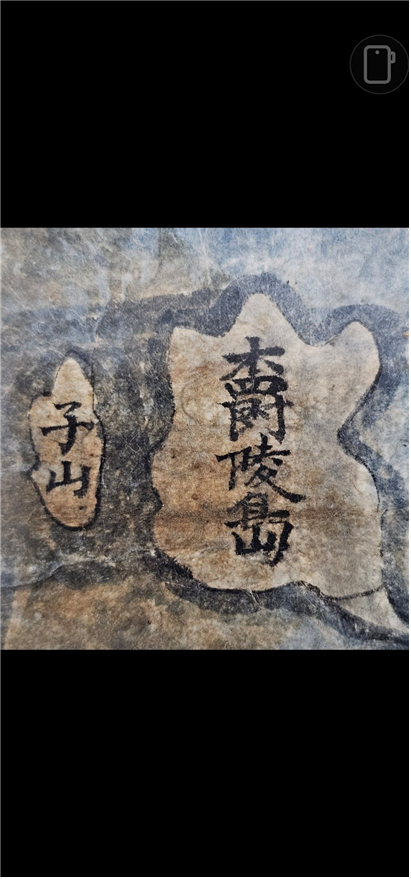 鬱陵島
子山